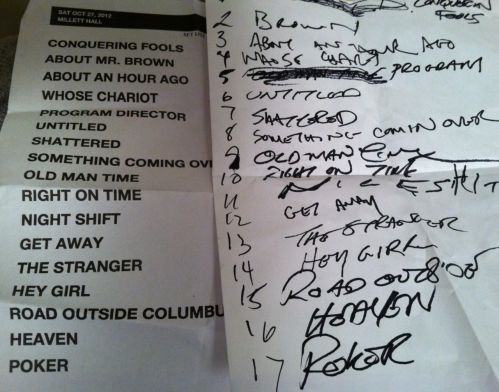 SAT OCT 27, 2012
MILLETT HALL
SET LIST
CONQUERING FOOLS
ABOUT MR. BROWN
ABOUT AN HOUR AGO
WHOSE CHARIOT
PROGRAM DIRECTOR
UNTITLED
SHATTERED
SOMETHING COMING OVE
OLD MAN TIME
RIGHT ON TIME
NIGHT SHIFT
GET AWAY
THE STRANGER
HEY GIRL
ROAD OUTSIDE COLUMBU
HEAVEN
POKER
CONQUERIN
FOOLS
2 BROWN
3 ABOUT AN HOUR AGO
4 WHOSE CHARIOT
5 PROGRAM
6 UNTITLED
7 SHATTERED
8 SOMETHING COMIN OVER
9 OLD MAN
10 RIGHT ON TIME
11 NITE SHIT
12 GET AWAY
13 THE STRANGER
14 HEY GIRL
15 ROAD OUTSIDE
16 HEAVEN
17 POKER